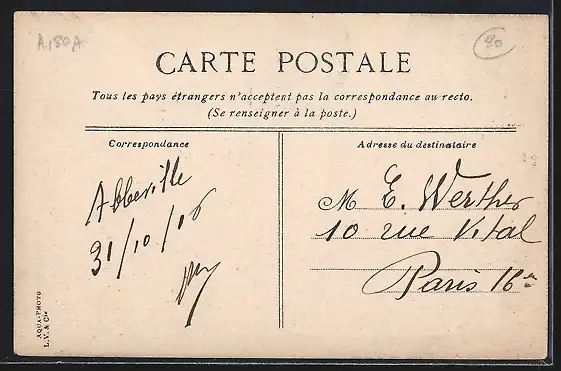 A.180A
80
CARTE POSTALE
Tous les pays étrangers n'acceptent pas la correspondance au recto.
(Se renseigner à la poste.)
Correspondance
Abbeville
31/10/06
Adresse du destinataire
M E. Werther
10 rue Vital
Paris 16em
AQUA-PHOTO
L. V. & Cie